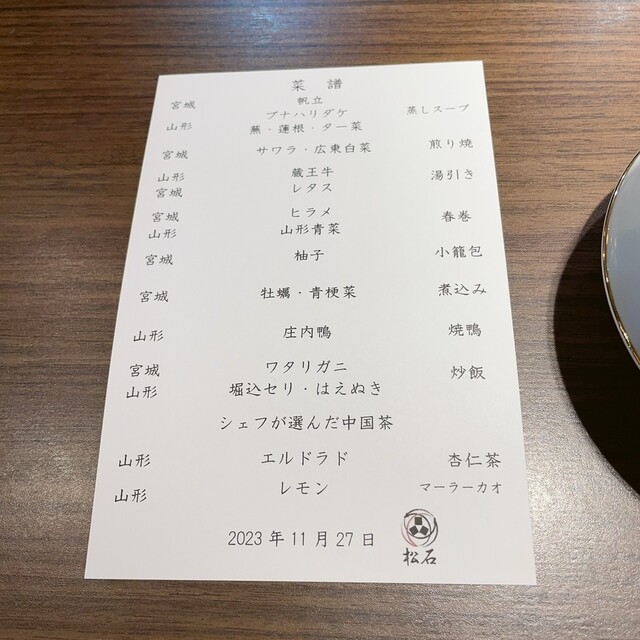 菜 譜
宮城 帆立
ブナハリダケ 蒸しスープ
山形 蕪・蓮根・ター菜
宮城 サワラ・広東白菜 煎り焼
山形 蔵王牛 湯引き
宮城 レタス
宮城 ヒラメ 春巻
山形 山形青菜
宮城 柚子 小籠包
宮城 牡蠣・青梗菜 煮込み
山形 庄内鴨 焼鴨
宮城 ワタリガニ 炒飯
山形 堀込セリ・はえぬき
シェフが選んだ中国茶
山形 エルドラド 杏仁茶
山形 レモン マーラーカオ
2023 年 11 月 27 日
松石